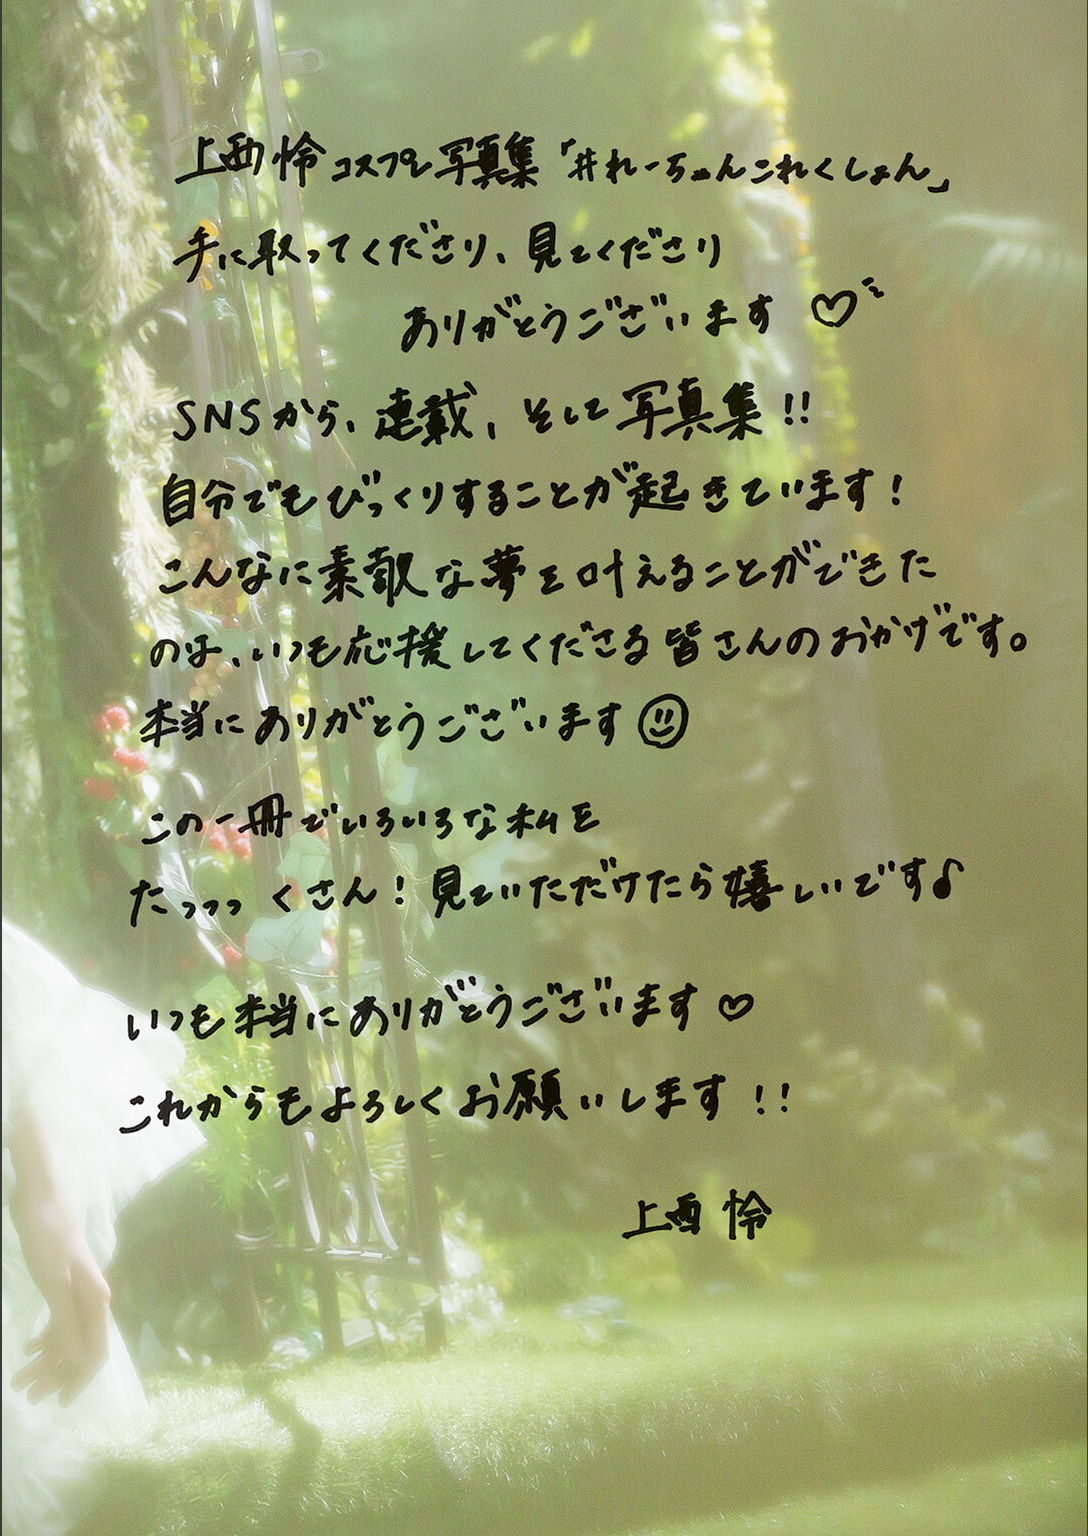 上西怜コスプレ写真集「#れーちゅんこれくしょん」
手に取ってくださり、見てくださり
ありがとうございます♡
SNSから、連載、そして写真集!!
自分でもびっくりすることが起きています!
こんなに素敵な夢を叶えることができた
のは、いつも応援してくださる皆さんのおかげです。
本当にありがとうございます☺
この一冊でいろいろな私を
たっっっくさん!見ていただけたら嬉しいです♪
いつも本当にありがとうございます♡
これからもよろしくお願いします!!
上西怜